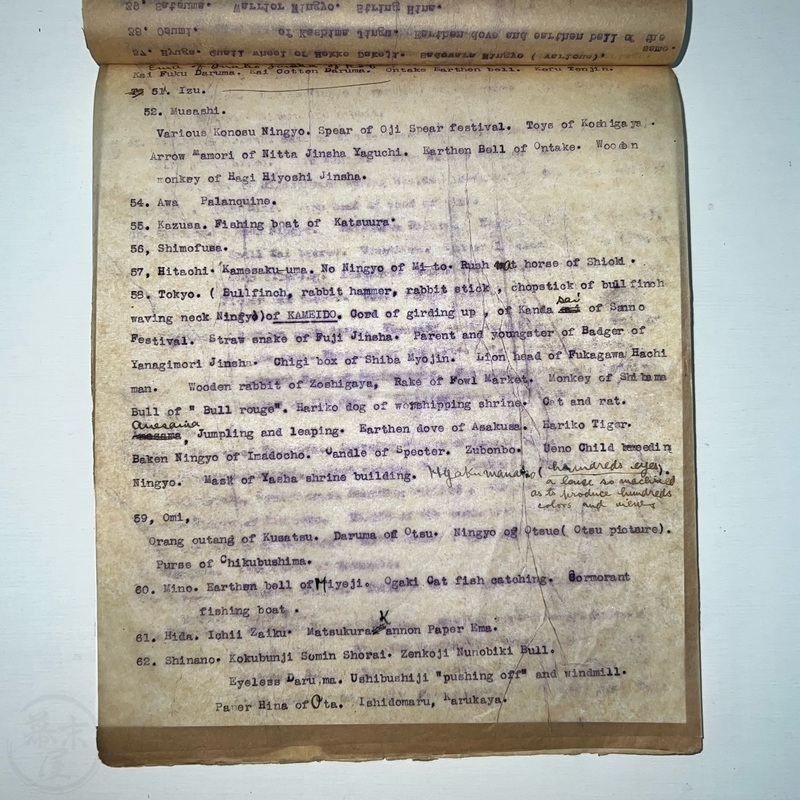 39. Satsuma. Warrior Ningyo. String Hina.
38. Osumi. of Kashima Jingu. Earthen dove and earthen bell of the same.
37. Hyuga.
Kai Fuku Daruma. Kai Cotton Daruma. Ontake Earthen bell. Kofu Tenjin.
51. Izu.
52. Musashi.
Various Konosu Ningyo. Spear of Oji Spear festival. Toys of Koshigaya.
Arrow mamori of Nitta Jinsha Yaguchi. Earthen Bell of Ontake. Wooden
monkey of Hagi Hiyoshi Jinsha.
54. Awa Palanquine.
55. Kazusa. Fishing boat of Katsuura.
56, Shimofusa.
57, Hitachi. Kamesaku-uma. No Ningyo of Mi-to. Rush mat horse of Shioki.
58. Tokyo. ( Bullfinch, rabbit hammer, rabbit stick, chopstick of bullfinch
waving neck Ningyo)of KAMEIDO. Cord of girding up, of Kanda sai of Sanno
Festival. Straw snake of Fuji Jinsha. Parent and youngster of Badger of
Yanagimori Jinsha. Chigi box of Shiba Myojin. Lion head of Fukagawa Hachi
man. Wooden rabbit of Zoshigaya, Rake of Fowl Market. Monkey of Shibama
Bull of " Bull rouge". Hariko dog of worshipping shrine. Cat and rat.
anesama, Jumpling and leaping. Earthen dove of Asakusa. Hariko Tiger.
Baken Ningyo of Imadocho. Candle of Specter. Zubonbo. Ueno Child breedin
Ningyo. Mask of Yasha shrine building. Hyakumanako (hamdreds eyes).
a lense so machined
as to produce hundreds
colors and views
59, Omi,
Orang outang of Kusatsu. Daruma of Otsu. Ningyo of Otsue( Otsu picture).
Purse of Chikubushima.
60. Mino. Earthen bell of Miyeji. Ogaki Cat fish catching. Cormorant
fishing boat.
61. Hida. Ichii Zaiku. Matsukura Kannon Paper Ema.
62. Shinano. Kokubunji Somin Shorai. Zenkoji Nunobiki Bull.
Eyeless Daru,ma. Ushibushiji "pushing off" and windmill.
Paper Hina of Ota. Ishidomaru, Karukaya.
幕末屋